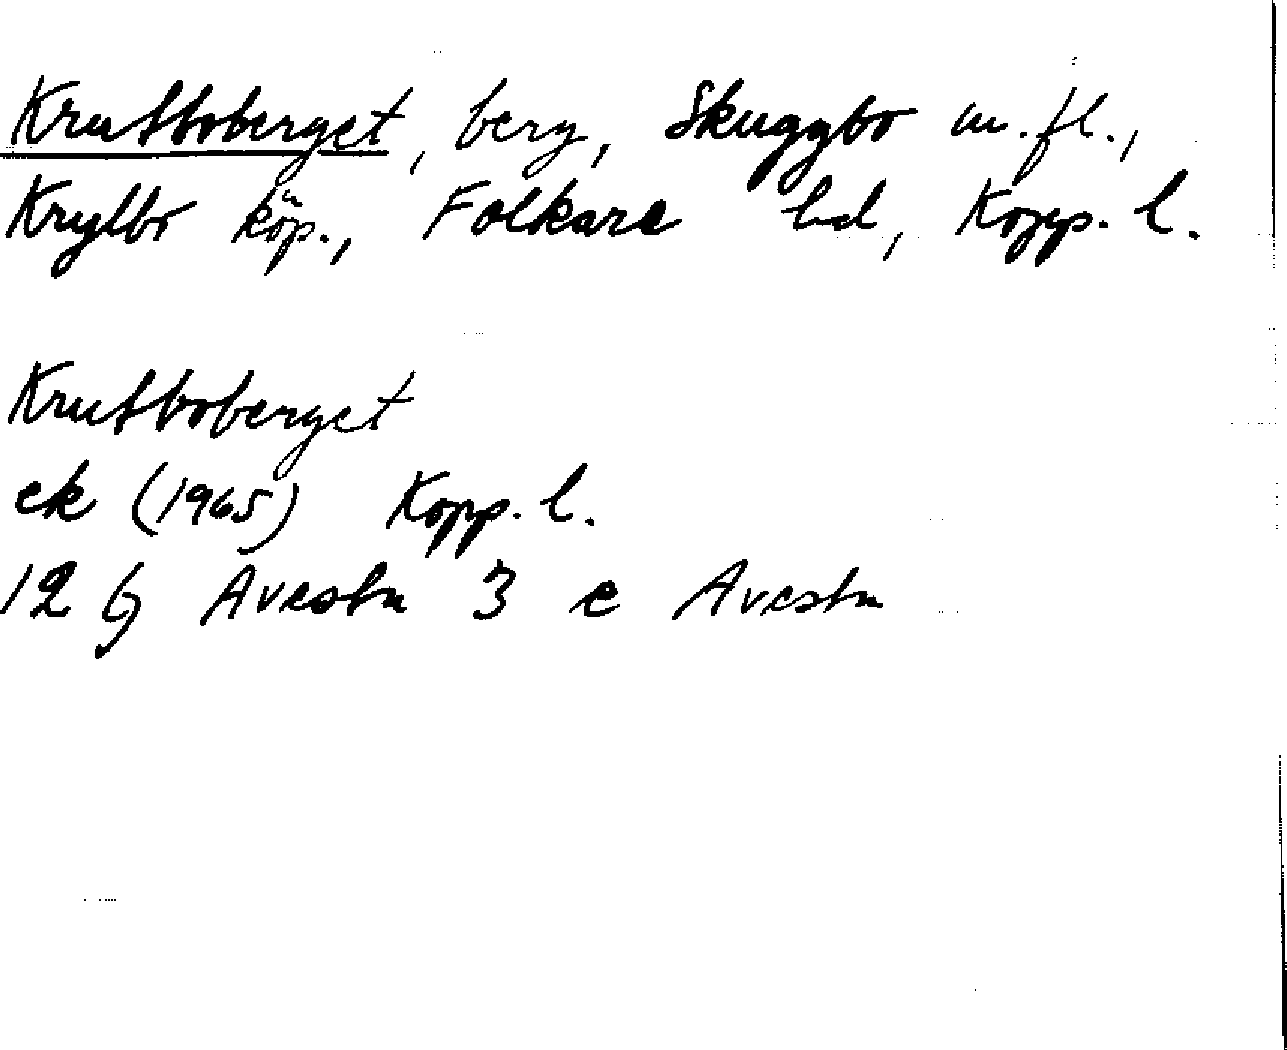 Krutboberget, berg, Skuggbo m.fl.,
Krylbo köp., Folkare hd, Kopp. l.
Krutboberget
ek (1965) Kopp. l.
12 G Avesta 3 e Avesta